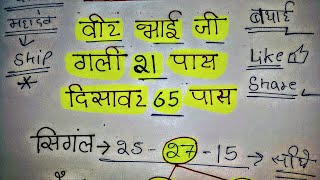 महादेव
ship
वीर भाई जी
गली 21 पास
दिसावर 65 पास
बधाई
Like
Share
सिगंल → 25 - 27 - 15 →